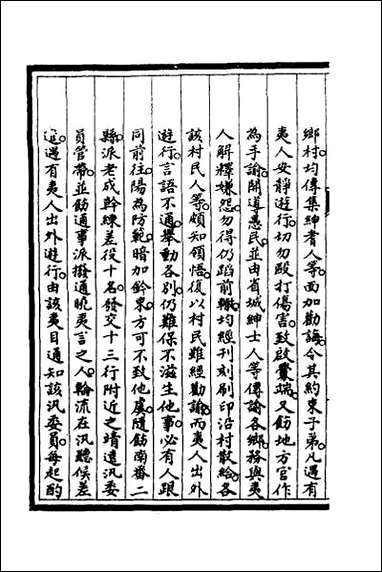 鄉村均傳集紳耆人等面加勸誨令其約束子弟凡遇有
夷人安靜遊行切勿毆打傷害致啟釁端又飭地方官作
為手諭開導愚民並由省城紳士人等傳諭各鄉務與夷
人解釋嫌怨勿得仍蹈前轍均經刊刻刷印沿村散給各
該村民人等頗知領悟復以村民雖經勸諭而夷人出外
遊行言語不通舉動各別仍難保不滋生他事必有人跟
同前往陽為防範暗加鈐束方可不致他虞隨飭南番二
縣派老成幹練差役十名發交十三行附近之靖遠汛委
員管帶並飭通事派撥通曉夷言之人輪流在汛聽候差
遣遇有夷人出外遊行由該夷目通知該汛委員每起酌